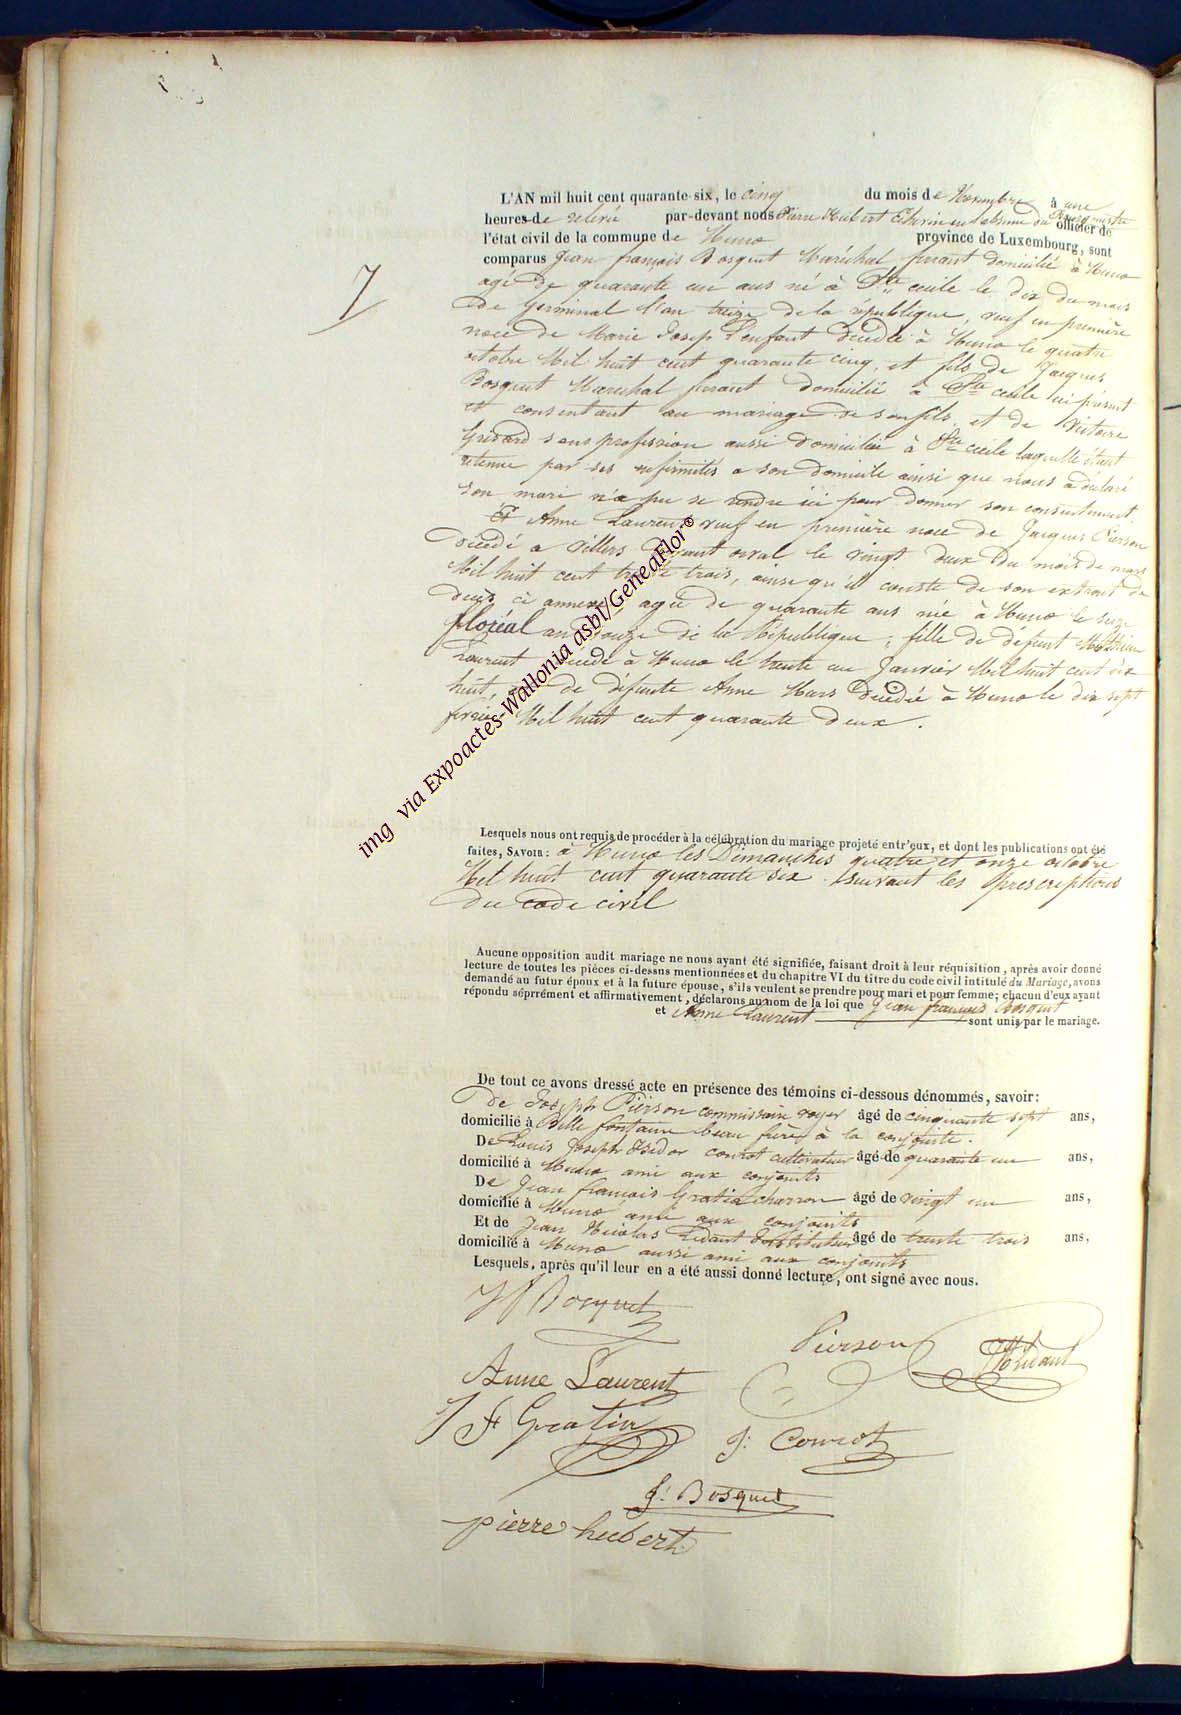 7
L'AN mil huit cent quarante-six, le cinq du mois de Novembre à une
heures de relevé par-devant nous Pierre Hubert Echevin en absence du Bourgmestre officier de
l'état civil de la commune de Muno province de Luxembourg, sont
comparus Jean françois Bosquet Maréchal ferrant domicilié à Muno
agé de quarante un ans né à Ste cecile le dix du mois
de Germinal l'an treize de la république, veuf en première
noce de Marie Josep Lenfant décédée à Muno le quatre
octobre Mil huit cent quarante cinq, et fils de Jacques
Bosquet Marechal ferrant domicilié à Ste cecile ici présent
et consentant au mariage de son fils, et de victoire
Grisard sans profession aussi domiciliée à Ste cecile laquelle étant
retenue par ses infirmités a son domicile ainsi que nous a déclaré
son mari n'a pu se rendre ici pour donner son consentement.
Et Anne Laurent veuf en première noce de Jacques Pierson
décédé a villers devant orval le vingt deux du mois de mars
Mil huit cent trente trois, ainsi qu'il conste de son extrait de
decès ci annexé, agée de quarante ans née à Muno le seize
floréal an douze de la République ; fille de defunt Mathieu
Laurent décédé à Muno le trente un Janvier Mil huit cent dix
huit, et de défunte Anne Mars décédée à Muno le dix sept
fevrier Mil huit cent quarante deux.
img via Expoactes-Wallonia asbl/GeneaFlor®
Lesquels nous ont requis de procéder à la célébration du mariage projeté entr'eux, et dont les publications ont été
faites, SAVOIR: à Muno les Dimanches quatre et onze octobre
Mil huit cent quarante six suivant les prescriptions
du code civil
Aucune opposition audit mariage ne nous ayant été signifiée, faisant droit à leur réquisition, après avoir donné
lecture de toutes les pièces ci-dessus mentionnées et du chapitre VI du titre du code civil intitulé du Mariage, avons
demandé au futur époux et à la future épouse, s'ils veulent se prendre pour mari et pour femme; chacun d'eux ayant
répondu séprrément et affirmativement, déclarons au nom de la loi que Jean françois Bosquet
et Anne Laurent sont unis par le mariage.
De tout ce avons dressé acte en présence des témoins ci-dessous dénommés, savoir:
De Joseph Pierson commissaire voyer âgé de cinquante sept ans,
domicilié à Belle fontaine beau frère à la conjointe.
De Louis Joseph Isidor conrot cultivateur âgé de quarante un ans,
domicilié à Muno ami aux conjoints
De Jean françois Gratia charron âgé de vingt un ans,
domicilié à Muno ami aux conjoints
Et de Jean Nicolas Lidant Instituteur âgé de trente trois ans,
domicilié à Muno aussi ami aux conjoints
Lesquels, après qu'il leur en a été aussi donné lecture, ont signé avec nous.
Jf Bosquet
Pierson
Anne Laurent
J F Gratia
J. Conrot
J. Bosquet
pierre hubert